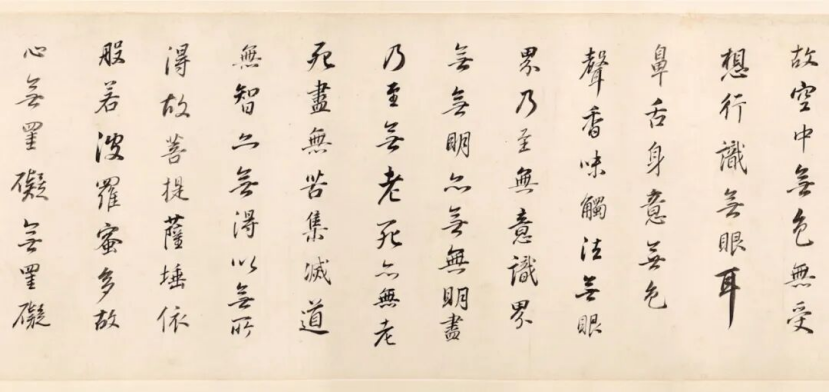 故空中無色無受
想行識無眼耳
鼻舌身意無色
聲香味觸法無眼
界乃至無意識界
無無明亦無無明盡
乃至無老死亦無老
死盡無苦集滅道
無智亦無得以無所
得故菩提薩埵依
般若波羅蜜多故
心無罣礙無罣礙